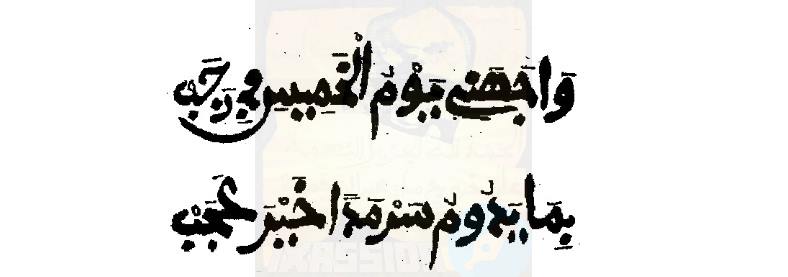 وَاجَهَنِي يَوْمَ الْخَمِيسِ فِي رَجَبْ
بِمَا يَدُومُ سَرْمَدًا خَيْرَ عَجَبْ